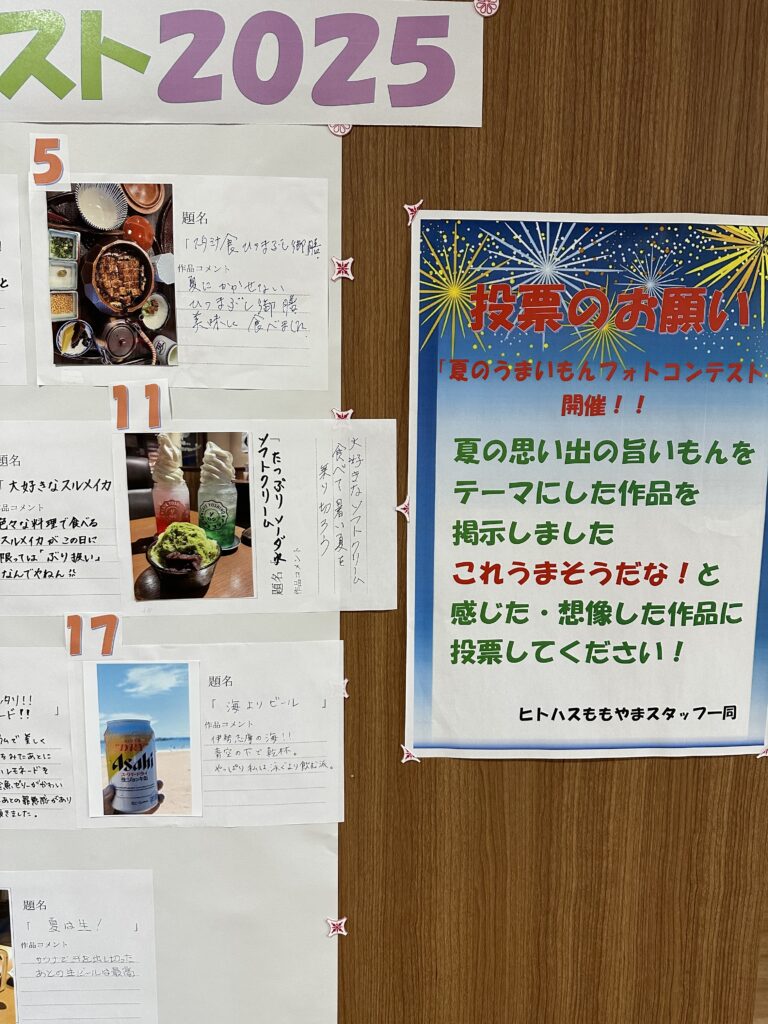 スト2025
5
題名
ひつまぶし御膳
作品コメント
夏にかかせない
ひつまぶし御膳
美味しく食べました
11
題名
「たっぷりソーダ水
ソフトクリーム
作品コメント
大好きなソフトクリーム
食べて暑い夏を
乗り切ろう
題名
「大好きなスルメイカ
作品コメント
色々な料理で食べる
スルメイカがこの日に
限っては「ぶり扱い」
なんでやねん
17
題名
「海よりビール」
作品コメント
伊勢志摩の海!!
青空の下で乾杯。
やっぱり私は、泳ぐより飲む派。
Asahi
題名
「夏は生!」
作品コメント
サウナで汗を出し切った
あとの生ビールは最高
投票のお願い
「夏のうまいもんフォトコンテスト
開催!!
夏の思い出の旨いもんを
テーマにした作品を
掲示しました
これうまそうだな!と
感じた・想像した作品に
投票してください!
ヒトハスももやまスタッフ一同